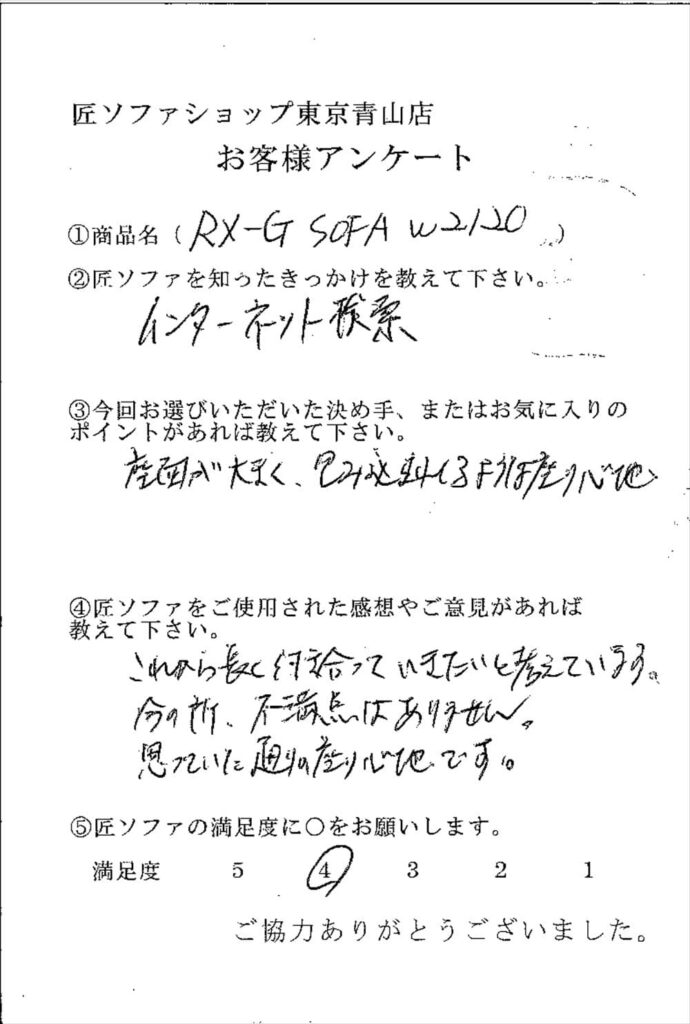 匠ソファショップ東京青山店
お客様アンケート
①商品名（ RX-G SOFA W2120 ）
②匠ソファを知ったきっかけを教えて下さい。
インターネット検索
③今回お選びいただいた決め手、またはお気に入りの
ポイントがあれば教えて下さい。
座面が大きく、包み込まれるような座り心地
④匠ソファをご使用された感想やご意見があれば
教えて下さい。
これから長く付き合っていきたいと考えています。
今の所、不満点はありません。
思っていた通りの座り心地です。
⑤匠ソファの満足度に○をお願いします。
満足度 5 4 3 2 1
ご協力ありがとうございました。